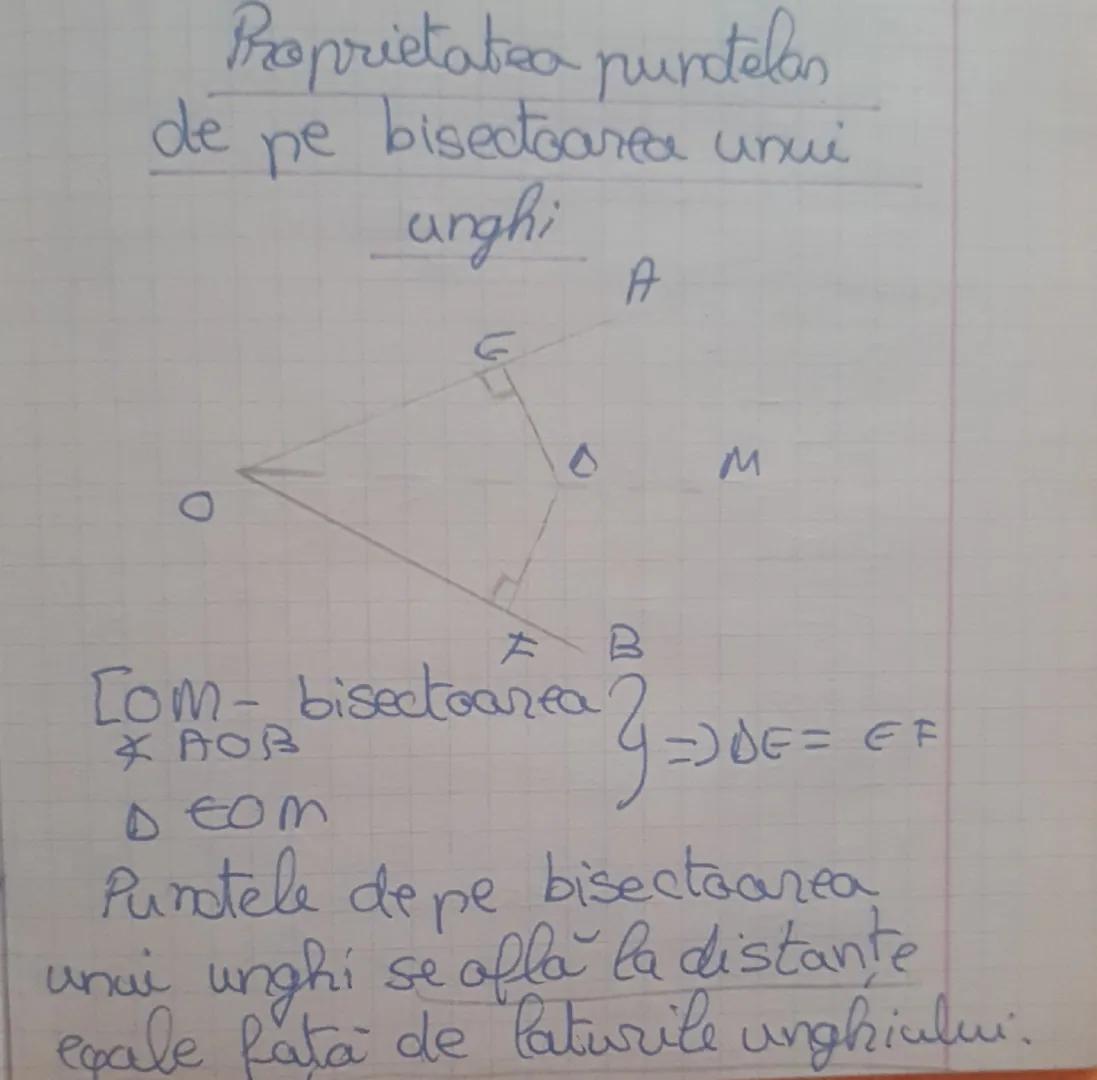 Proprietatea punctelor
de pe bisectoarea unui
unghi
A
E
D
M
O
F
B
[OM - bisectoarea
∢ AOB
} => DE = EF
D ∈ OM
Punctele de pe bisectoarea
unui unghi se află la distanțe
egale față de laturile unghiului.